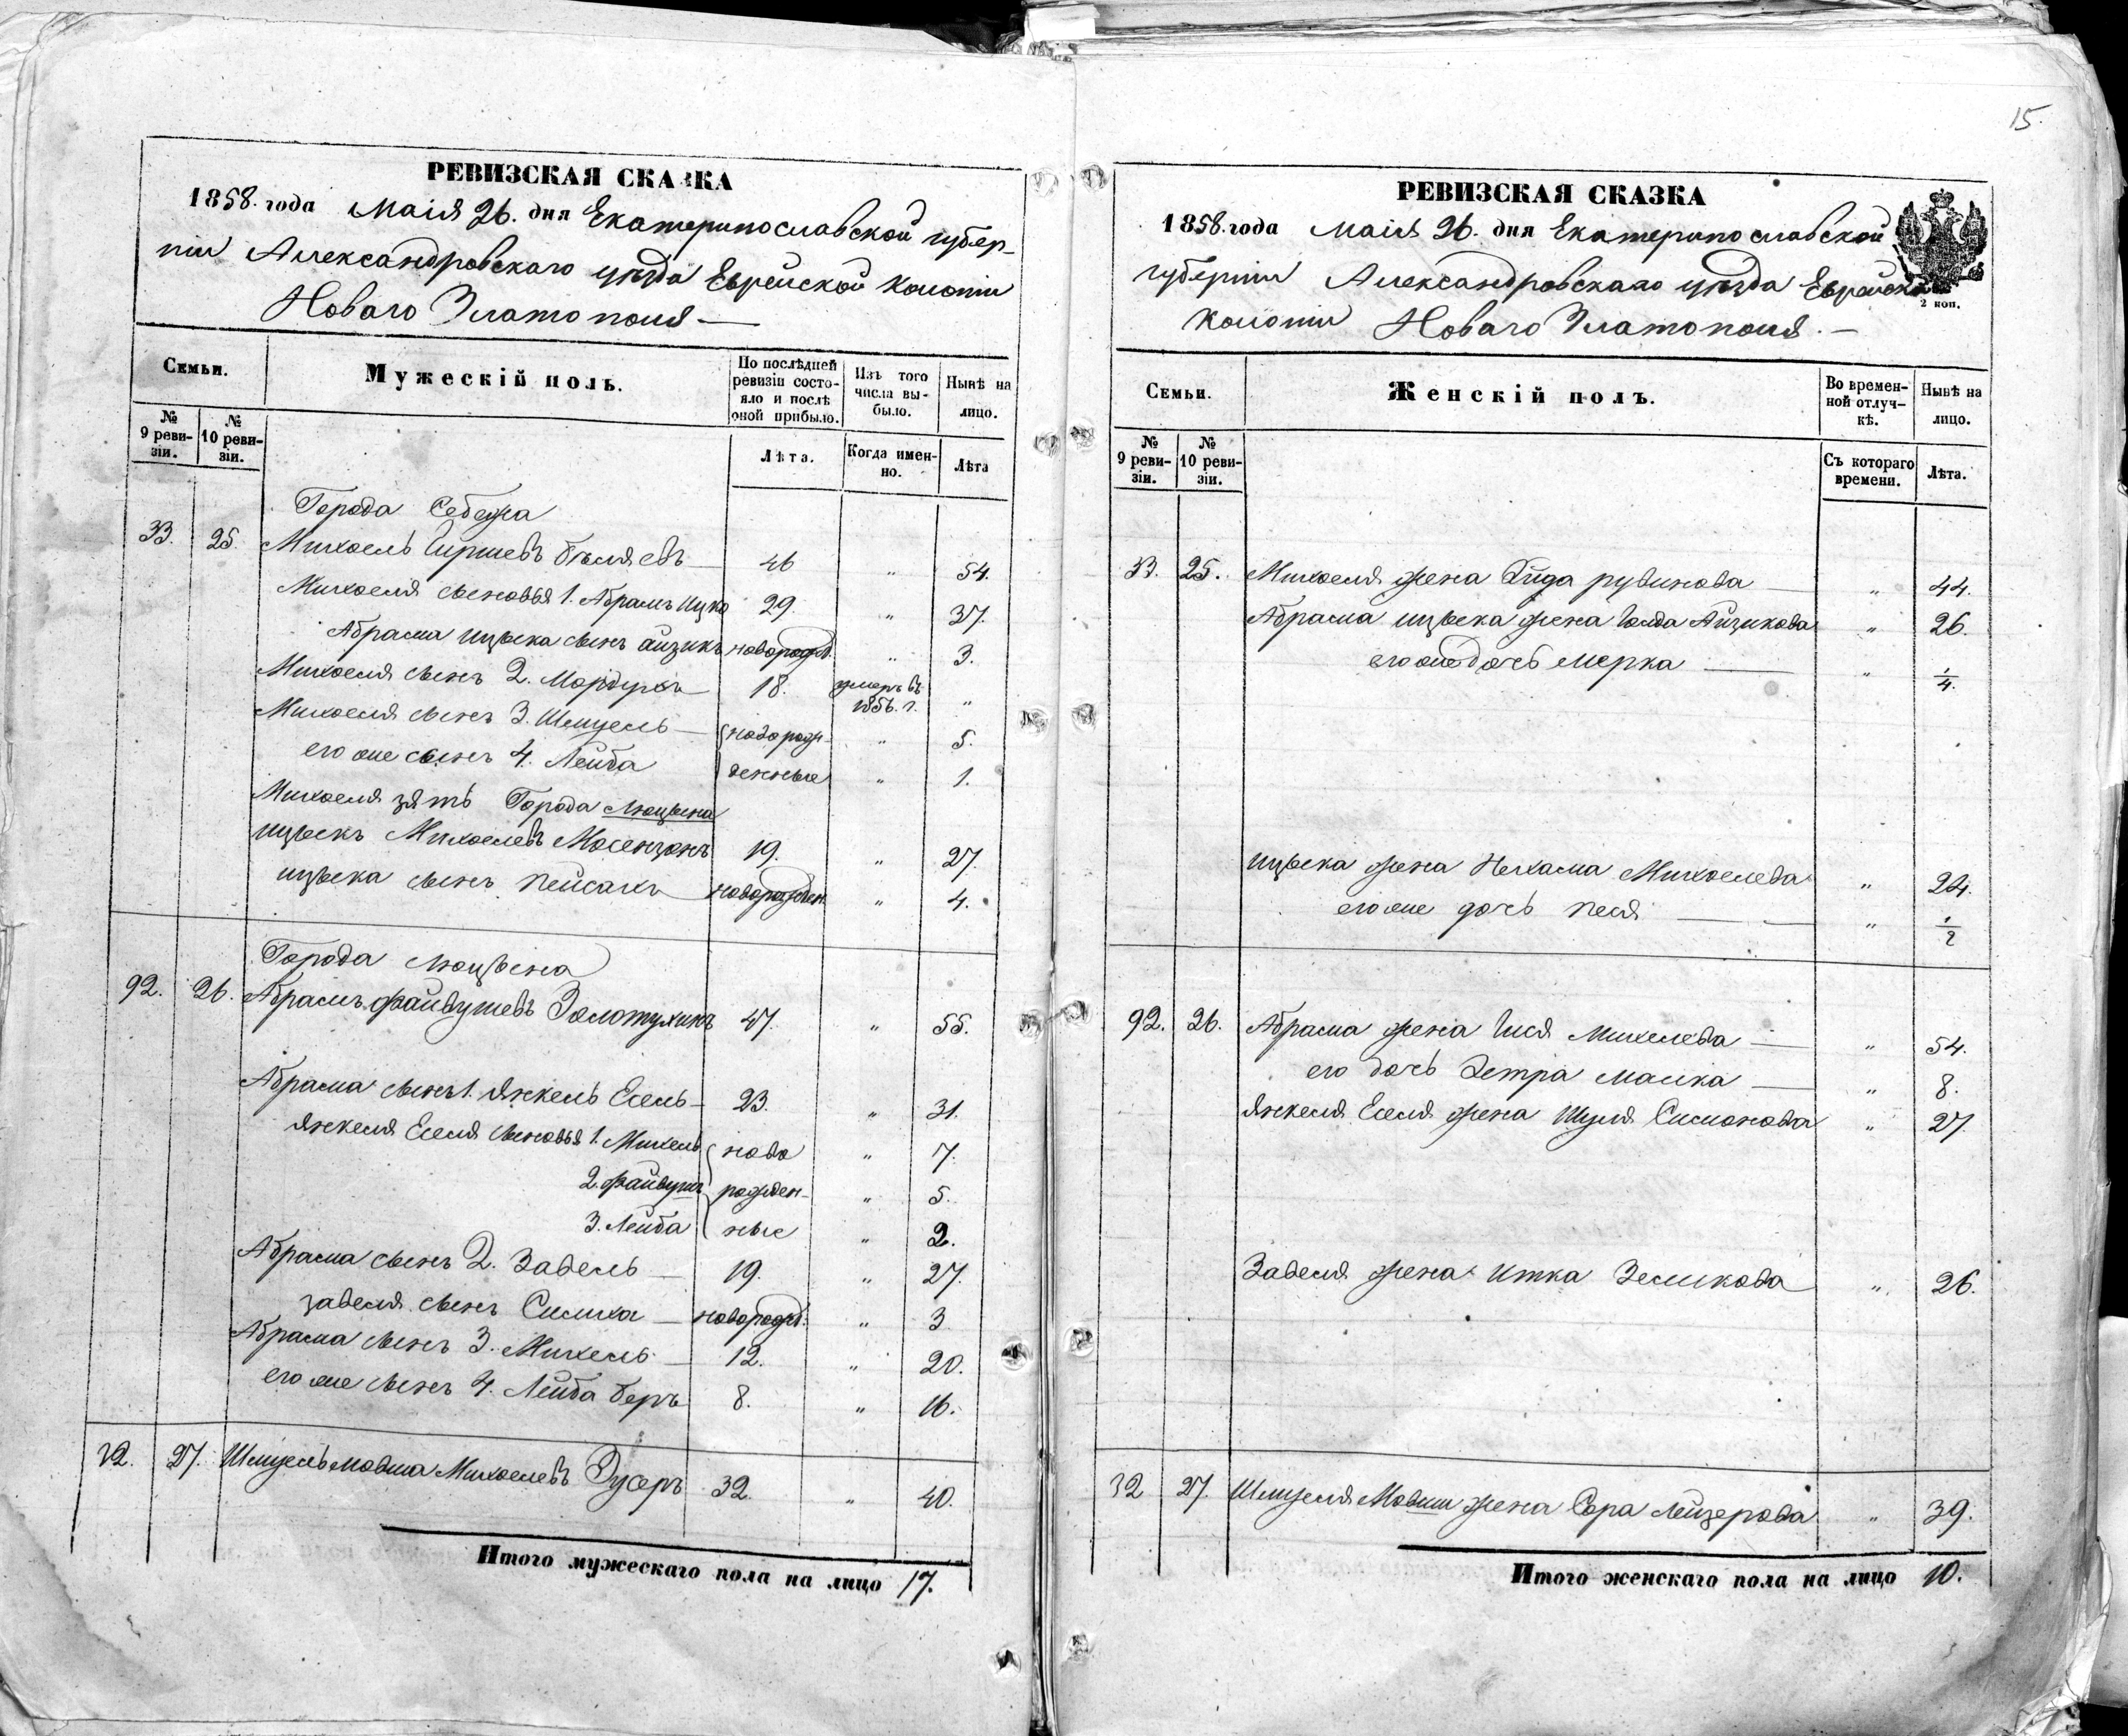 15.
РЕВИЗСКАЯ СКАЗКА
1858. года Маія 26. дня Екатеринославской губер-
ніи Александровскаго уѣзда Еврейской колоніи
Новаго Златополя
Семьи.
Мужескій полъ.
По послѣдней ревизіи состо-
яло и послѣ оной прибыло.
Изъ того числа вы-
было.
Нынѣ на лицо.
№ 9 реви-
зіи.
№ 10 реви-
зіи.
Лѣта.
Когда имен-
но.
Лѣта
Города Себежа
33. 25. Михоель Гиршевъ Бѣляевъ 46 " 54.
Михоеля сыновья 1. Абрамъ Ицко 29. " 37.
Абрама Ицыека сынъ Айзикъ новорожд. " 3.
Михоеля сынъ 2. Мордухъ 18. умеръ въ 1856. г. "
Михоеля сынъ 3. Шмуель новорож- " 5.
его же сынъ 4. Лейба денные " 1.
Михоеля зять Города Люцына
Ицыекъ Михоелевъ Мосензонъ 19. " 27.
Ицыека сынъ Пейсахъ новорожден. " 4.
Города Люцына
92. 26. Абрамъ Файвушевъ Золотухинъ 47. " 55.
Абрама сынъ 1. Янкель Есель 23. " 31.
Янкеля Еселя сыновья 1. Михель ново " 7.
2. Файвушъ рожден- " 5.
3. Лейба ные " 2.
Абрама сынъ 2. Завель 19. " 27.
Завеля сынъ Симха новорожд. " 3
Абрама сынъ 3. Михель 12. " 20.
его же сынъ 4. Лейба Беръ 8. " 16.
32. 27. Шмуель Мовша Михоелевъ Дусеръ 32. " 40.
Итого мужескаго пола на лицо 17.
РЕВИЗСКАЯ СКАЗКА
1858. года Маія 26. дня Екатеринославской
губерніи Александровскаго уѣзда Еврейской
колоніи Новаго Златополя.
2 коп.
Семьи.
Женскій полъ.
Во времен-
ной отлуч-
кѣ.
Нынѣ на лицо.
№ 9 реви-
зіи.
№ 10 реви-
зіи.
Съ котораго времени.
Лѣта.
33. 25. Михоеля жена Рувинова " 44.
Абрама Ицыека жена Голда Айзикова " 26.
его же дочь Мерка " 1/4.
Ицыека жена Нехама Михоелева " 24.
его же дочь Песя " 1/2
92. 26. Абрама жена Гися Михелева " 54.
его дочь Малка " 8.
Янкеля Еселя жена Шуля Симонова " 27.
Завеля жена Итка Зеликова " 26.
32 27. Шмуеля Мовши жена Сора Лейзерова " 39.
Итого женскаго пола на лицо 10.